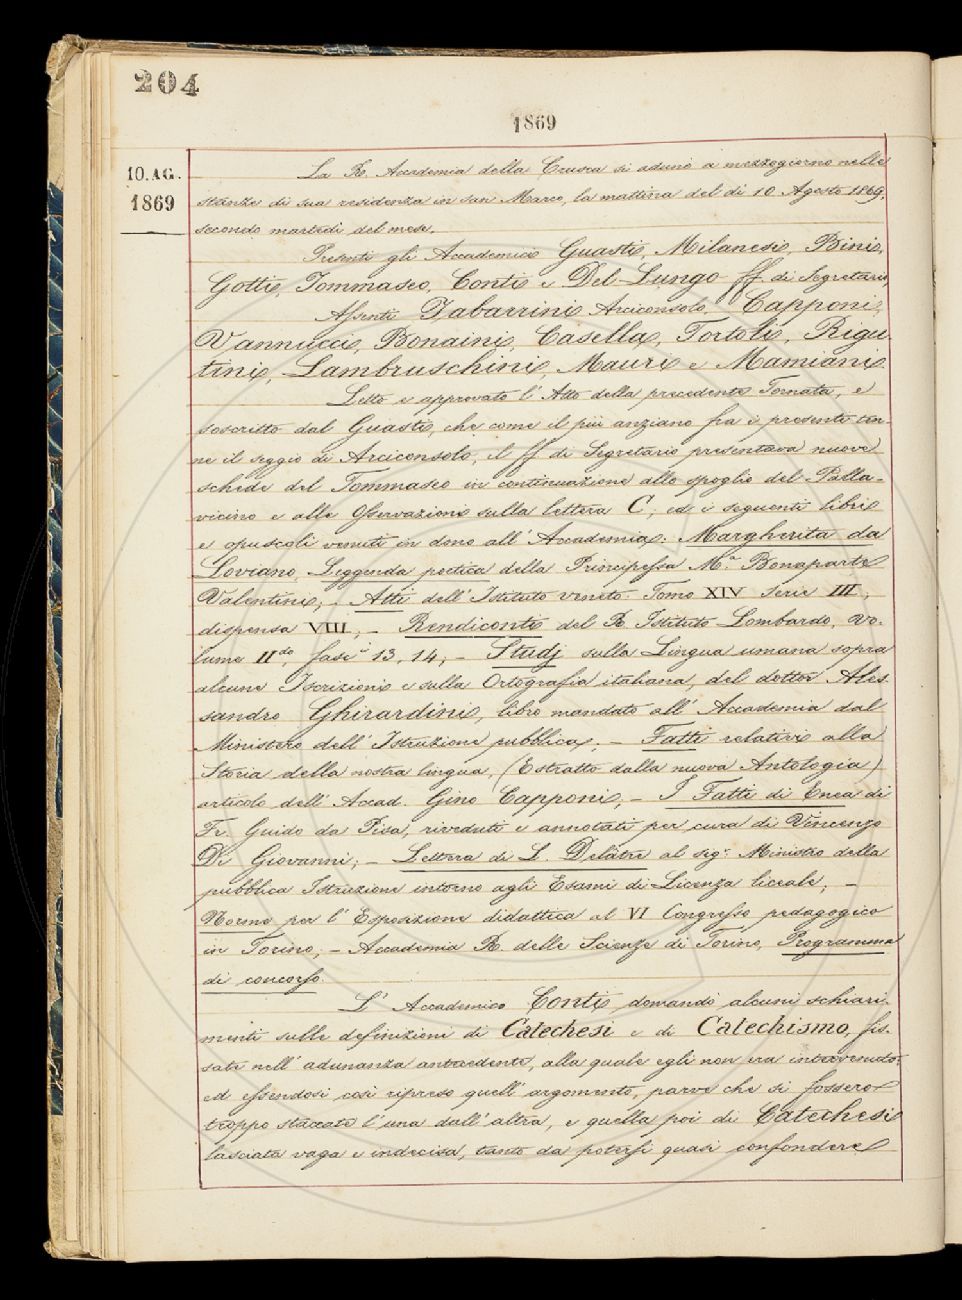 204
1869
10. AG.
1869
La R. Accademia della Crusca si adunò a mezzogiorno nelle
stanze di sua residenza in San Marco, la mattina del dì 10 Agosto 1869,
secondo martedì del mese.
Presenti gli Accademici Guasti, Milanesi, Bini,
Gotti, Tommaseo, Conti e Del-Lungo ff. di Segretario,
Assenti Tabarrini Arciconsolo, Capponi,
Vannucci, Bonaini, Casella, Tortoli, Rigu-
tini, Lambruschini, Mauri e Mamiani.
Letto e approvato l'Atto della precedente Tornata, e
soscritto dal Guasti, che come il più anziano fra i presenti ten-
ne il seggio di Arciconsolo, il ff di Segretario presentava nuove
schede del Tommaseo in continuazione allo spoglio del Palla-
vicino e alle Osservazioni sulla lettera C; ed i seguenti libri
e opuscoli venuti in dono all'Accademia: Margherita da
Loviano, Leggenda poetica della Principessa M.ª Bonaparte
Valentini; - Atti dell'Istituto veneto Tomo XIV Serie III,
dispensa VIII; - Rendiconti del R. Istituto Lombardo, Vo-
lume II.do, fasi.i 13, 14; - Studj sulla Lingua umana sopra
alcune Iscrizioni e sulla Ortografia italiana, del dottor Ales-
sandro Ghirardini, libro mandato all'Accademia dal
Ministero dell'Istruzione pubblica; - Fatti relativi alla
Storia della nostra lingua, (Estratto dalla nuova Antologia)
articolo dell'Accad. Gino Capponi; - I Fatti di Enea di
Fr. Guido da Pisa, riveduti e annotati per cura di Vincenzo
Di Giovanni; - Lettera di L. Delâtre al sig.r Ministro della
pubblica Istruzione intorno agli Esami di Licenza liceale; -
Norme per l'Esposizione didattica al VI Congresso pedagogico
in Torino; - Accademia R. delle Scienze di Torino, Programma
di concorso.
L'Accademico Conti domandò alcuni schiari-
menti sulle definizioni di Catechesi e di Catechismo, fis-
sate nell'adunanza antecedente, alla quale egli non era intravenuto:
ed essendosi così ripreso quell'argomento, parve che si fossero
troppo staccate l'una dall'altra, e quella poi di Catechesi
lasciata vaga e indecisa, tanto da potersi quasi confondere